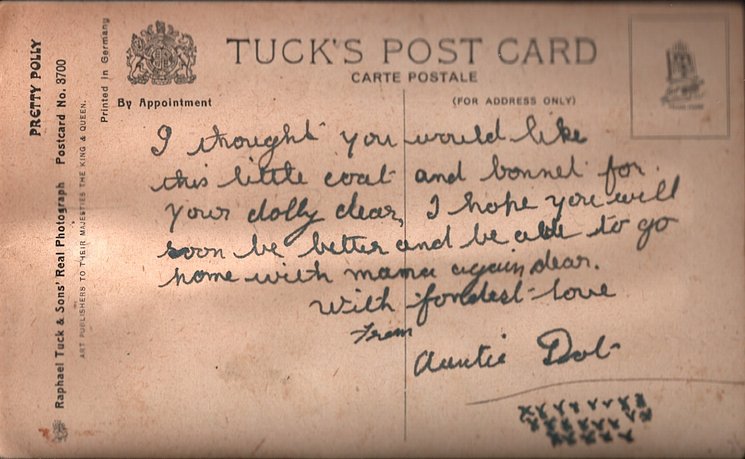 TUCK'S POST CARD
CARTE POSTALE
By Appointment
(FOR ADDRESS ONLY)
PRETTY POLLY
Printed in Germany
Raphael Tuck & Sons' Real Photograph Postcard No. 3700
ART PUBLISHERS TO THEIR MAJESTIES THE KING & QUEEN.
I thought you would like
this little coat and bonnet for
your dolly dear, I hope you will
soon be better and be able to go
home with mama again dear.
With fondest love
From
Auntie Dot
x x x x x x x
x x x x x x
x x x x x